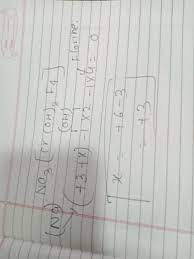 (Na) Na₃ [Cr(OH)₂ F₄]
(OH) Florine.
(+3+x) -1×2 -1×4 = 0
x = +6-3
= +3